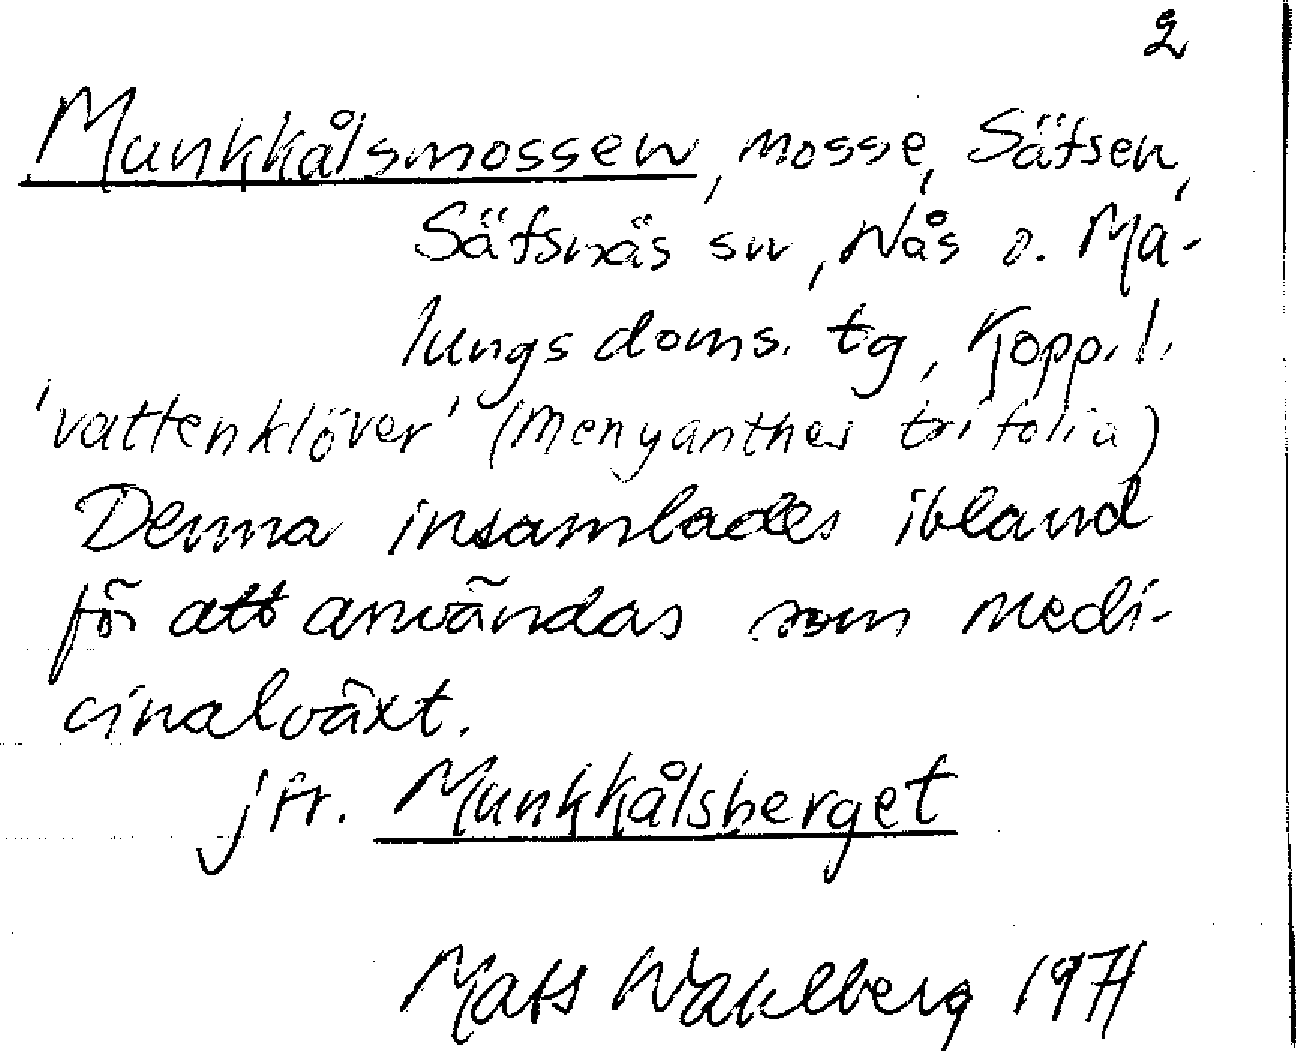 2
Munkkålsmossen, mosse, Säfsen,
Säfsnäs sn, Nås o. Ma-
lungs doms. tg, Kopp. l.
'vattenklöver' (Menyanthes trifolia)
Denna insamlades ibland
för att användas som medi-
cinalväxt.
jfr. Munkkålsberget
Mats Wahlberg 1971